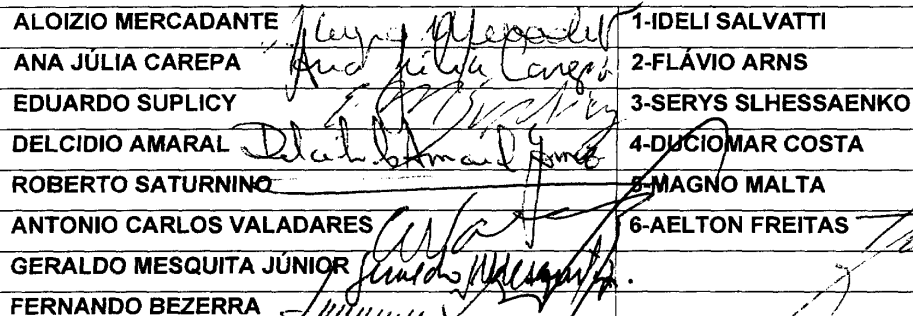 ALOIZIO MERCADANTE 1-IDELI SALVATTI
ANA JÚLIA CAREPA Ana Júlia Carepa 2-FLÁVIO ARNS
EDUARDO SUPLICY 3-SERYS SLHESSAENKO
DELCIDIO AMARAL Delcidio Amaral Gomez 4-DUCIOMAR COSTA
ROBERTO SATURNINO 5-MAGNO MALTA
ANTONIO CARLOS VALADARES 6-AELTON FREITAS
GERALDO MESQUITA JÚNIOR Geraldo Mesquita Jr.
FERNANDO BEZERRA